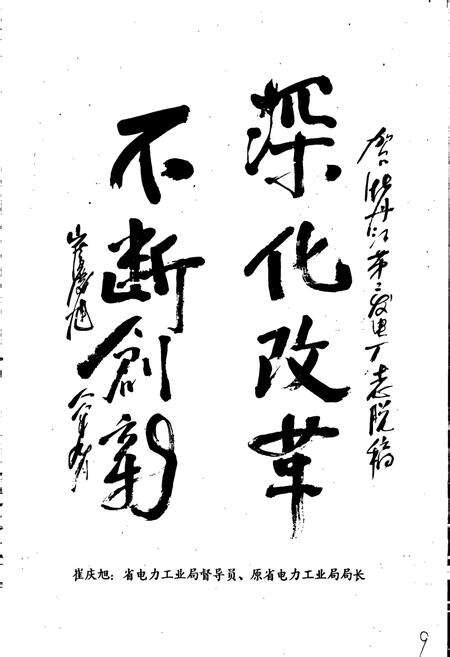 贺牡丹江第二发电厂志脱稿
深化改革
不断创新
崔庆旭
崔庆旭：省电力工业局督导员、原省电力工业局局长
9